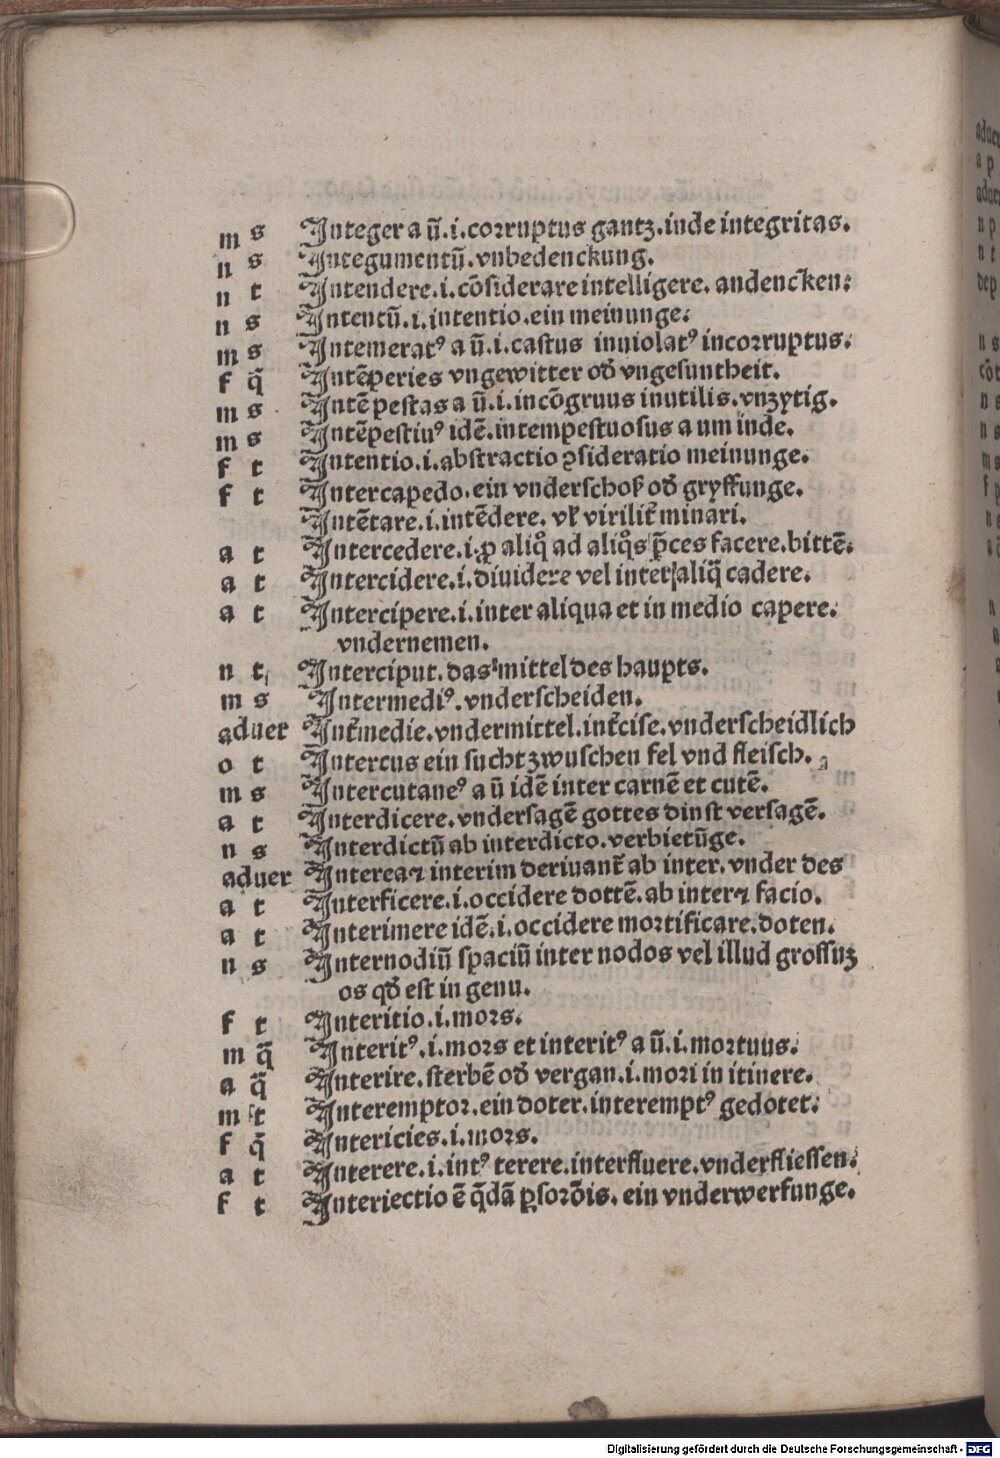 m s Integer a ū.i.corruptus gantz.inde integritas.
n s Integumentū.vnbedenckung.
n t Intendere.i.cōsiderare intelligere. andencken.
n s Intentū.i.intentio.ein meinunge.
m s Intemeratꝰ a ū.i.castus inuiolatꝰ incorruptus.
f q̄ Intēperies vngewitter od̄ vngesuntheit.
m s Intēpestas a ū.i.incōgruus inutilis.vnzytig.
m s Intēpestiuꝰ idē.intempestuosus a um inde.
f t Intentio.i.abstractio ꝯsideratio meinunge.
f t Intercapedo.ein vnderschoß od̄ gryffunge.
Intētare.i.intēdere. vł virilit̄ minari.
a t Intercedere.i.ꝓ aliq̊ ad aliq̊s p̄ces facere.bittē.
a t Intercidere.i.diuidere vel inter aliq̄ cadere.
a t Intercipere.i.inter aliqua et in medio capere.
vndernemen.
n t Interciput.das mittel des haupts.
m s Intermediꝰ.vnderscheiden.
aduer Int̄medie.vndermittel.int̄cise.vnderscheidlich
o t Intercus ein sucht zwuschen fel vnd fleisch.
m s Intercutaneꝰ a ū idē inter carnē et cutē.
a t Interdicere.vndersagē gottes dinst versagē.
n s Interdictū ab interdicto.verbietūge.
aduer Interea ⁊ interim deriuant̄ ab inter.vnder des
a t Interficere.i.occidere dottē.ab inter ⁊ facio.
a t Interimere idē.i.occidere mortificare.doten.
n s Internodiū spaciū inter nodos vel illud grossuꝫ
os qd̄ est in genu.
f t Interitio.i.mors.
m q̄ Interitꝰ.i.mors et interitꝰ a ū.i.mortuus.
a q̄ Interire.sterbē od̄ vergan.i.mori in itinere.
m t Interemptor.ein doter.interemptꝰ gedotet.
f q̄ Intericies.i.mors.
a t Interere.i.intꝰ terere.interfluere.vnderfliessen.
f t Interiectio ē q̄dā ꝑs orōis.ein vnderwerfunge.
Digitalisierung gefördert durch die Deutsche Forschungsgemeinschaft - DFG